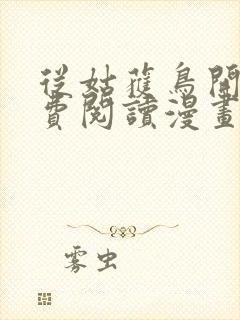 從姑蘿鳥開
費閱讀漫畫
雾虫